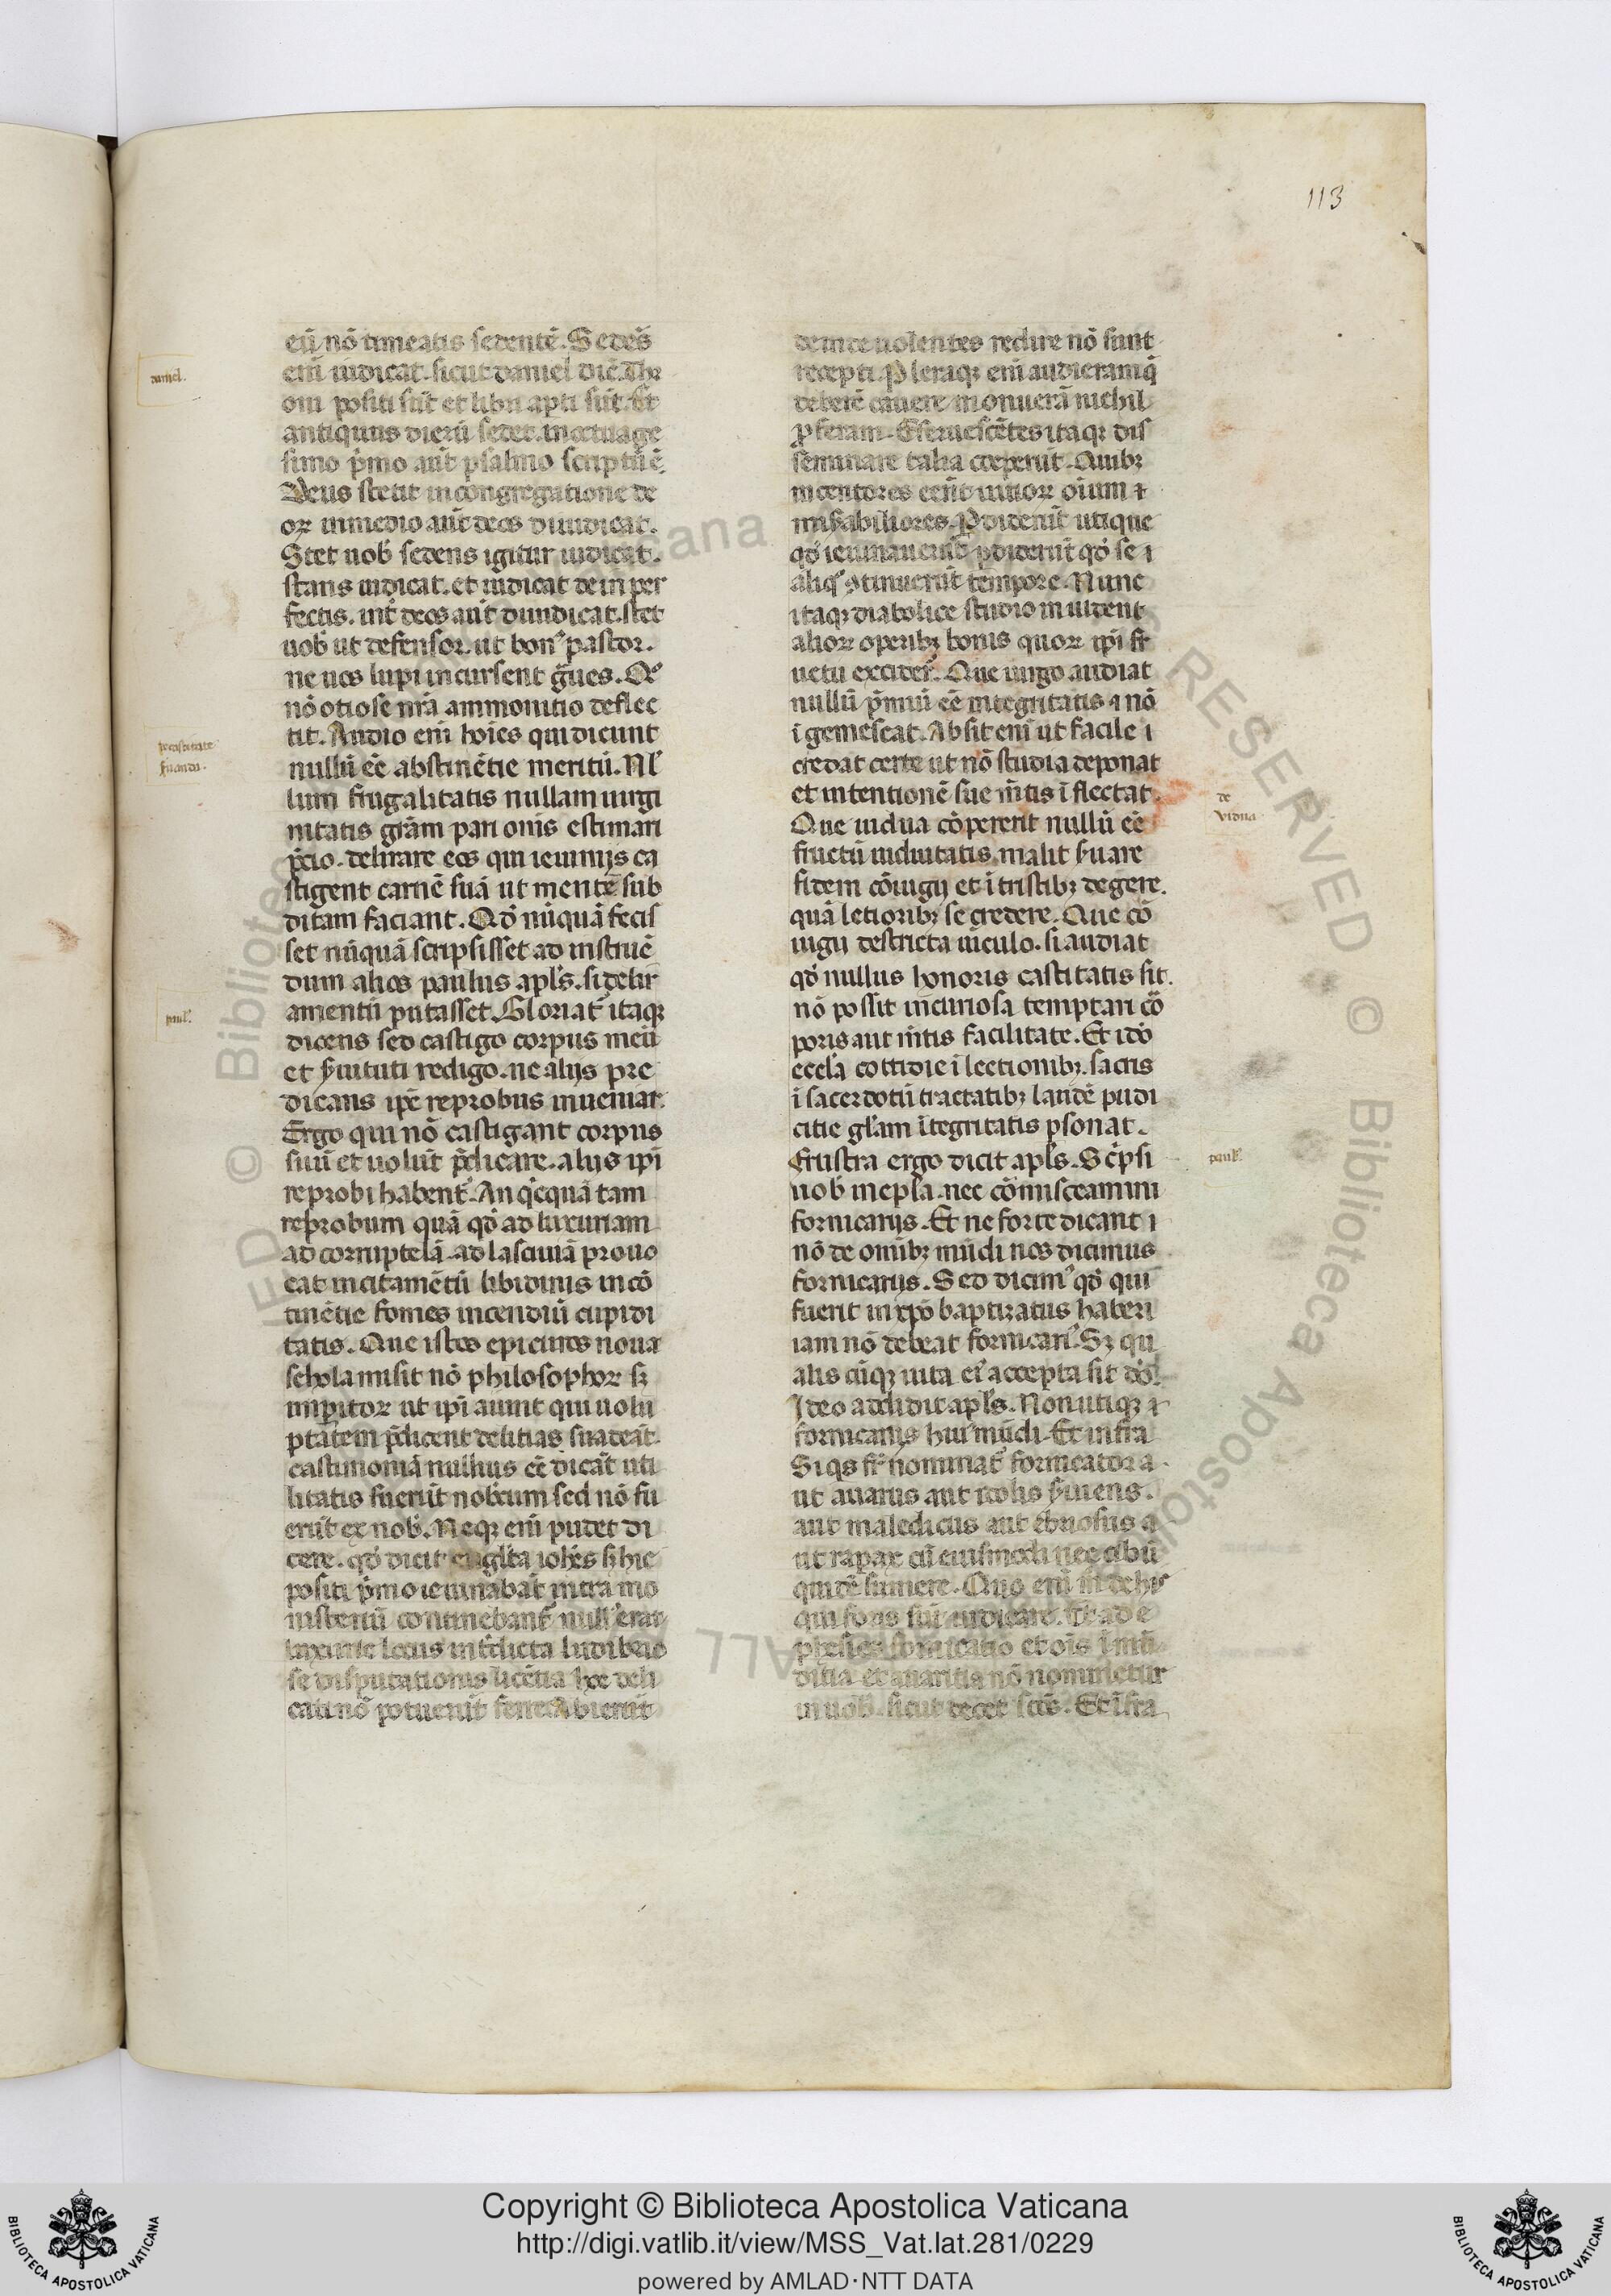 113
daniel.
eū nō timeatis sedentē. Sedēs
eni iudicat. sicut daniel dic̄. Thr
oni positi sūt et libri apti sūt. Et
antiquus dierū sedet. in octuage
simo pͥmo aūt psalmo scriptū ē.
Deus stetit in congregatione de
oꝝ in medio aūt deos diiudicat.
Stet uob̄ sedens igitur iudicat.
stans iudicat. et iudicat de inper
fectis. int̄ deos aūt diiudicat. stet
uob̄ ut defensor. ut bonꝰ pastor.
ne uos lupi incursent gͣues.
nō otiose nr̄a ammonitio deflec
tit. Audio eni hoīes qui dicunt
nullū eē abstinētie meritū. Nl̄
lum frugalitatis nullam uirgi
nitatis grām pari onis estimari
p̄cio. delirare eos qui ieiunijs ca
stigent carnē suā ut mentē sub
ditam faciant. Qd̄ nūquā fecis
set nūquā scripsisset ad instruē
dum alios paulus apl̄s. si delir
amentū putasset. Gloriat̄ itaqꝫ
dicens sed castigo corpus meū
et s̄uituti redigo. ne alijs pre
dicans ip̄e reprobus inueniar.
Ergo qui nō castigant corpus
suū et uolūt p̄dicare. alijs ip̄i
reprobi habent̄. An qͥcquā tam
reprobum quā qd̄ ad luxuriam
ad corruptelā. ad lasciuiā prouo
cat incitamētū libidinis incō
tinētie fomes incendiū cupidi
tatis. Que istos epicuros noua
schola misit nō philosophoꝝ sꝫ
impitoꝝ ut ip̄i aiunt qui uolu
ptatem p̄dicent delitias suadeāt.
castimoniā nullius eē dicāt uti
litatis fuerūt nobcum sed nō fu
erūt ex nob̄. Neqꝫ eni pudet di
cere. qd̄ dicit euāglīta ioh̄es s̄ hic
positi pͥmo ieiunabāt intra mo
nisteriū continebant̄ nullꝰ erat
luxurie locus int̄dicta ludibrio
se disputationis licētia hoc deli
cati nō potuerūt ferre. Abierūt
paul.
deinde uolentes redire nō sunt
recepti. Pleraqꝫ eni audieram q̄
deberē cauere monuerā nichil
ꝓferam. Eferuescētes itaqꝫ dis
seminare talia ceperūt. Quibꝫ
incentores eēnt uitioꝝ oīum ⁊
mis̄abiliores. Pdiderūt utique
qd̄ ieiunauerūt ꝑdiderūt qd̄ se ı
aliqͦ ꝯtinuerūt tempore. Nunc
itaqꝫ diabolice studio inuident
alioꝝ operibꝫ bonis quoꝝ ip̄i fr
uctu excider̄. Que uirgo audiat
nullū p̄miū eē integritatis ⁊ nō
īgemescat. Absit eni ut facile ı
credat certe ut nō studia deponat
et intentionē sue m̄tis īflectat.
Que uidua cōpererit nullū eē
fructū uiduitatis. malit s̄uare
fidem cōiugij et ī tristibꝫ degere.
quā letioribꝫ se credere. Que cō
iugij destricta uīculo. si audiat
qd̄ nullus honoris castitatis sit.
nō possit incuriosa temptari cō
poris aut m̄tis facilitate. Et idō
eccl̄a cottidie ī lectionibꝫ. sacris
ī sacerdotū tractatibꝫ laudē pudi
citie gl̄am ītegritatis ꝑsonat.
Frustra ergo dicit apl̄s. Sc̄psi
uob̄ in epl̄a. nec cōmisceamini
fornicarijs. Et ne forte dicant ı
nō de omībꝫ mūdi nos dicimus
fornicarijs. Sed dicimꝰ qd̄ qui
fuerit in xp̄o baptizatus haberi
iam nō debeat fornicariꝰ. Sꝫ qu
alis cūqꝫ uita eiꝰ accepta sit dō.
Ideo addidit apl̄s. Non utiqꝫ ⁊
fornicarijs huiꝰ mūdi. Et infra
Si qͥs fr̄ nominat̄ fornicator a
ut auarus aut idolis s̄uiens.
aut maledicus aut ebriosus a
ut rapax cū eiusmodi nec cibū
quidē sumere. Quo eni m̄ de his
qui foris sūt iudicare. Et ad e
phesios fornicatio et oīs īmū
ditia et auaritia nō nominetur
in uob̄. sicut decet scōs. Et īfra
de
vidua
paul.
Copyright © Biblioteca Apostolica Vaticana
http://digi.vatlib.it/view/MSS_Vat.lat.281/0229
powered by AMLAD·NTT DATA
BIBLIOTECA APOSTOLICA VATICANA
BIBLIOTECA APOSTOLICA VATICANA